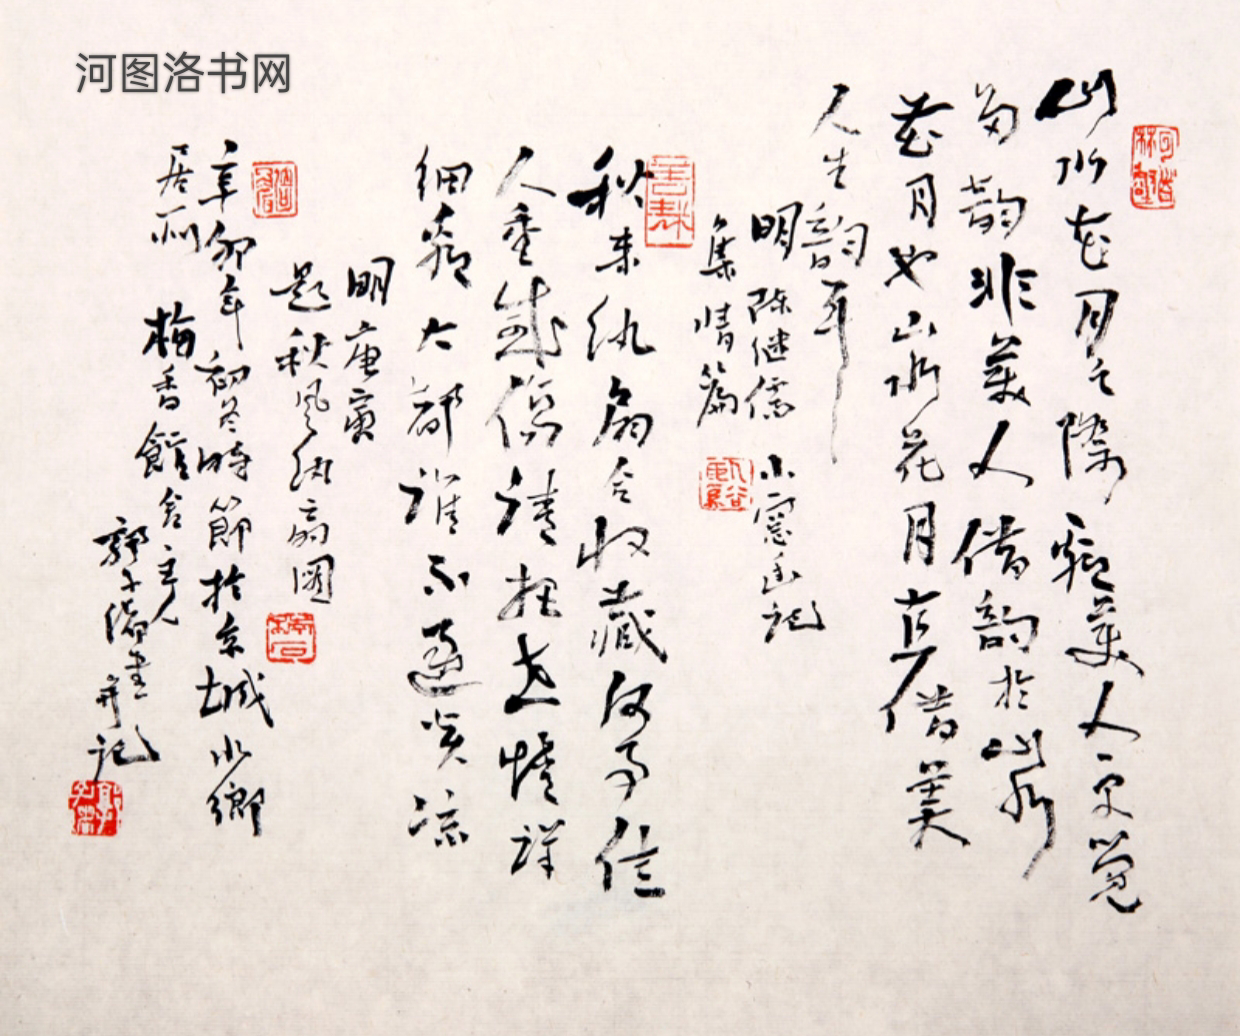 河图洛书网
山水花月之際看美人更觉
多韵非美人借韵於山水
花月也山水花月直借美
人生韵耳
明 陈继儒 小窗幽记
集情篇
秋来纨扇合收藏何事佳
人重感伤请把世情详
细看大都谁不逐炎凉
明唐寅
题秋风纨扇圖
辛卯年初冬時節於京城水鄉
居所 梅香館舍主人
郭子 書并记